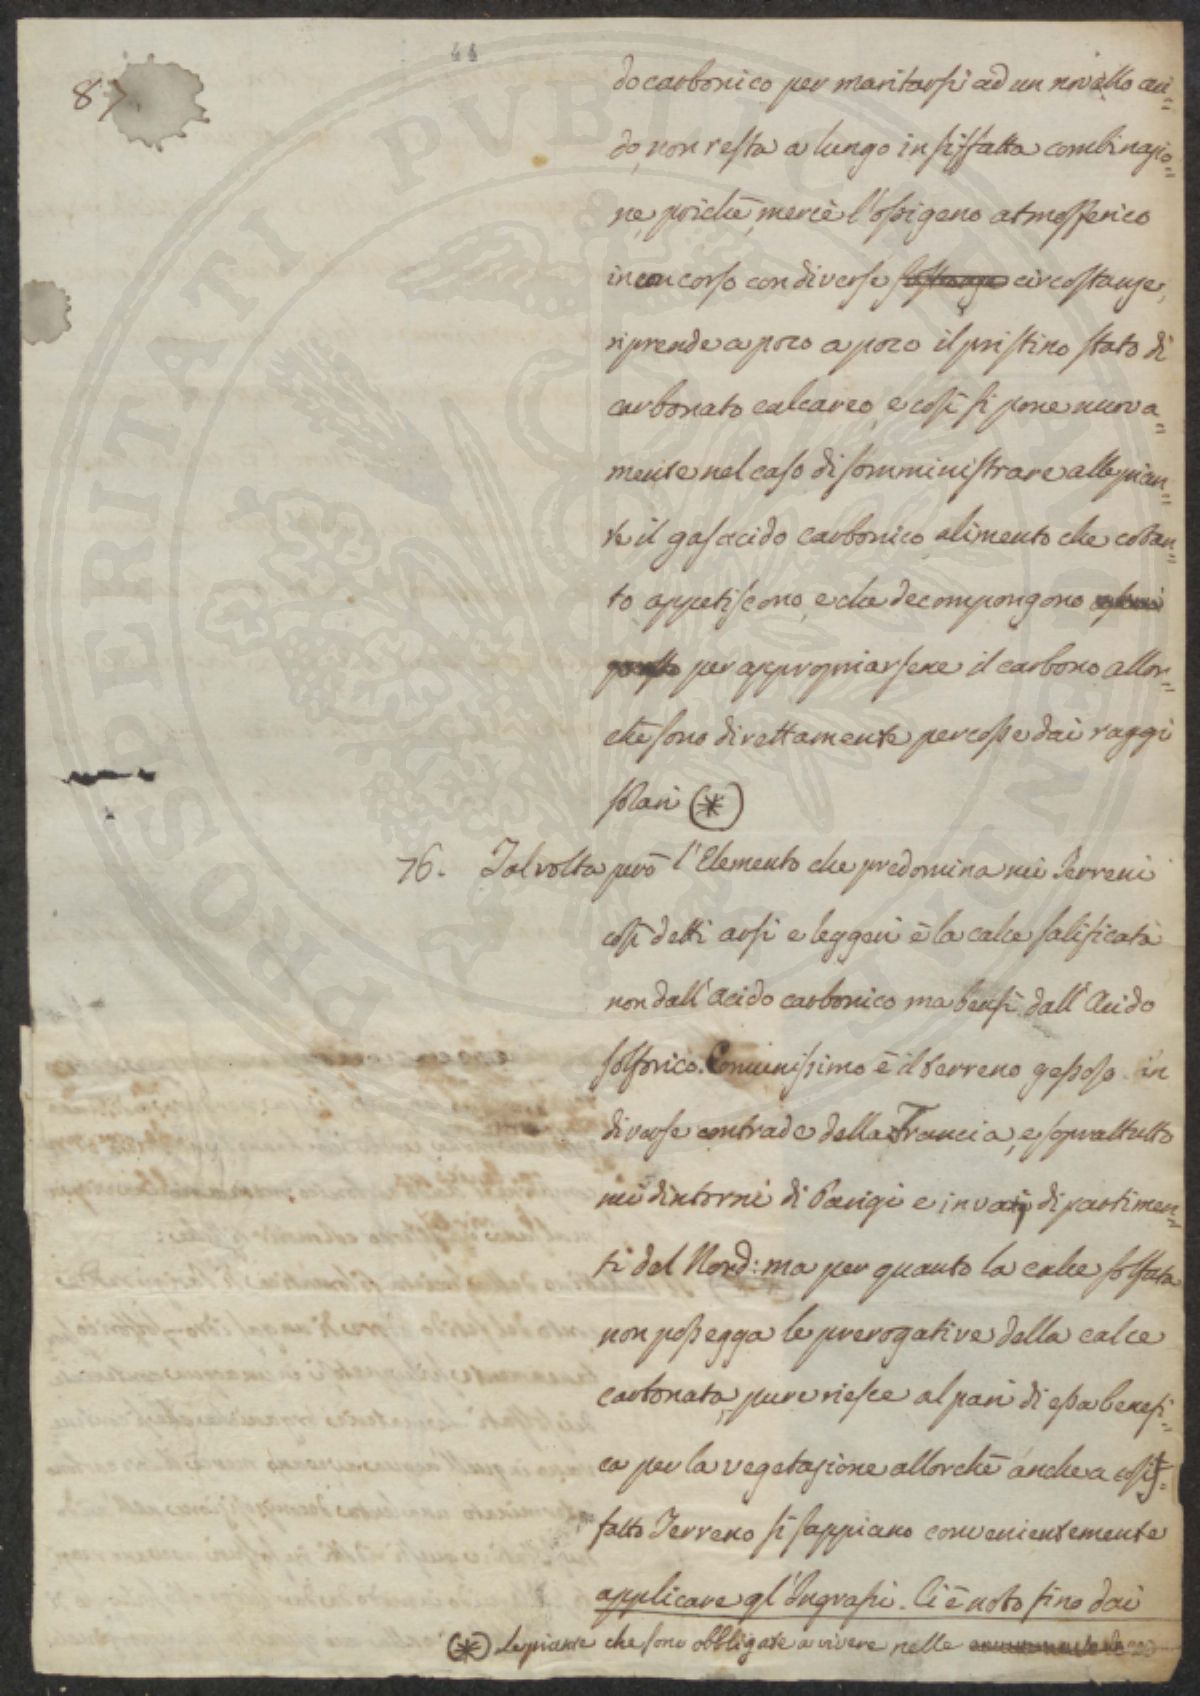 44
87.
do carbonico per maritarsi ad un novello aci=
do, non resta a lungo in siffatta combinazio=
ne, poichè, mercè l'ossigeno atmosferico
in concorso con diverse sostanze circostanze,
riprende a poco a poco il pristino stato di
carbonato calcareo, e così si pone nuova=
mente nel caso di somministrare alle pian=
te il gas acido carbonico, alimento che cotan=
to appetiscono, e che decompongono
per appropriarsene il carbono allor=
chè sono direttamente percosse dai raggi
solari (*)
76. Talvolta però l'Elemento che predomina nei Terreni
così detti arsi e leggeri è la calce salificata
non dall'acido carbonico ma bensì dall'Acido
solforico. Comunissimo è il terreno gessoso in
diverse contrade della Francia, e sopratutto
nei dintorni di Parigi e in varj dipartimen=
ti del Nord: ma per quanto la calce solfata
non possegga le prerogative della calce
carbonata, pure riesce al pari di essa benefi=
ca per la vegetazione allorchè anche a cosif=
fatto Terreno si sappiano convenientemente
applicare gl'Ingrassi. Ci è noto fino dai
(*) Le piante che sono obbligate a vivere nelle
PROSPERITATI PUBLICAE AUGENDAE